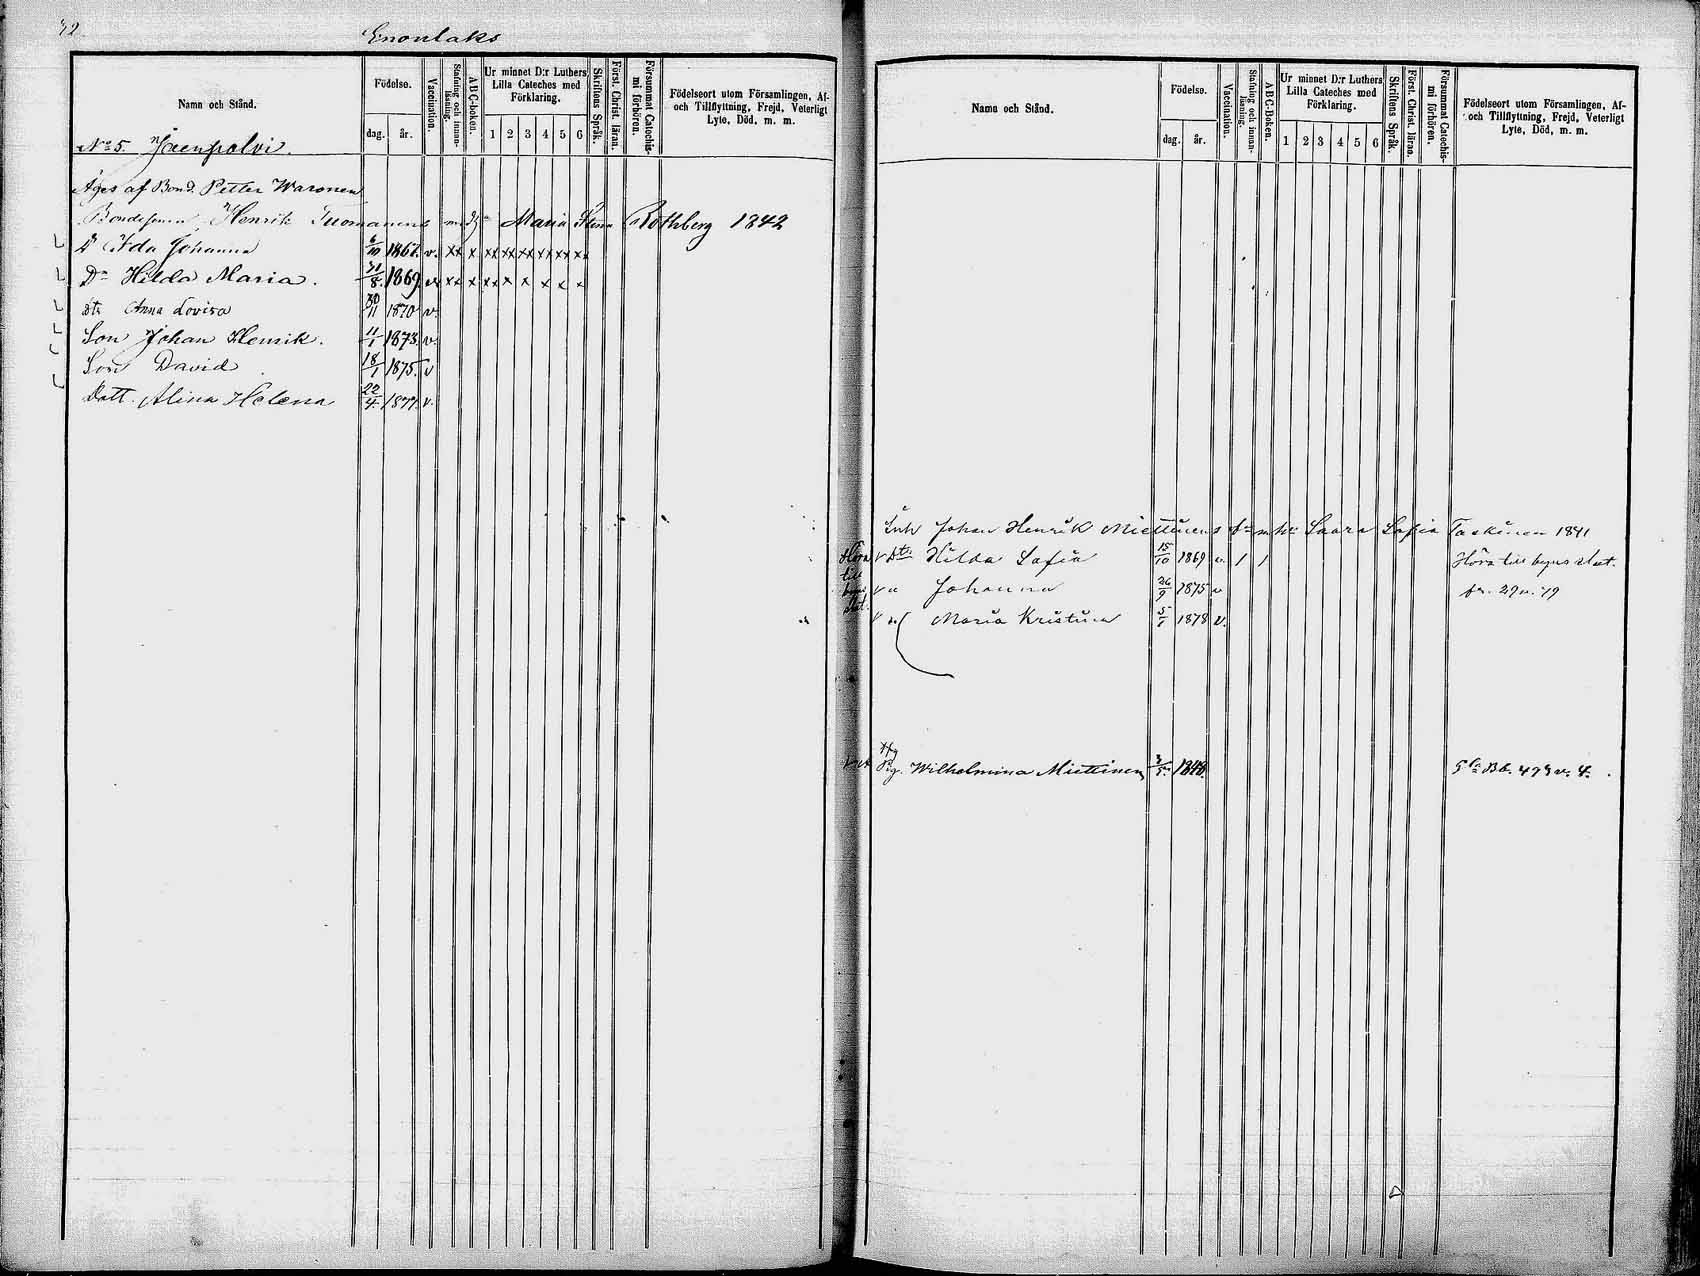 Enonlaks
Namn och Stånd.
Födelse.
dag. år.
Vaccination.
Stafning och innanläsning.
ABC-boken.
Ur minnet D:r Luthers Lilla Cateches med Förklaring.
1 2 3 4 5 6
Skriftens Språk.
Först. Christ. läran.
Försummat Catechismi förhören.
Födelseort utom Församlingen, Af- och Tillflyttning, Frejd, Veterligt Lyte, Död, m. m.
No 5.
Äges af Bond. Petter Waronen
Bondesonen Henrik Tuomainens Maria Stina Rothberg 1842
Ida Johanna 1867. v. xx x xx xx xx xx xx x
Dr Hilda Maria. 1869. v. xx x xx x x x x x
dtr Anna Lovisa 30/11 1870 v.
Son Johan Henrik. 11/1 1873. v.
Son David 18/1 1875. v
Dott. Alina Helena 22/4. 1877. v.
Namn och Stånd.
Födelse.
dag. år.
Vaccination.
Stafning och innanläsning.
ABC-Boken.
Ur minnet D:r Luthers Lilla Cateches med Förklaring.
1 2 3 4 5 6
Skriftens Språk.
Först. Christ. läran.
Försummat Catechismi förhören.
Födelseort utom Församlingen, Af- och Tillflyttning, Frejd, Veterligt Lyte, Död, m. m.
Inh Johan Henrik Miettinens Saara Sofia Taskinen 1841
Höra till byns slut. v Dtr Hilda Sofia 15/10 1869 v. / / Höra till byns slut.
v " Johanna 26/9 1875 v
v " Maria Kristina 5/1 1878 v.
Pig. Wilhelmina Miettinen 1848.